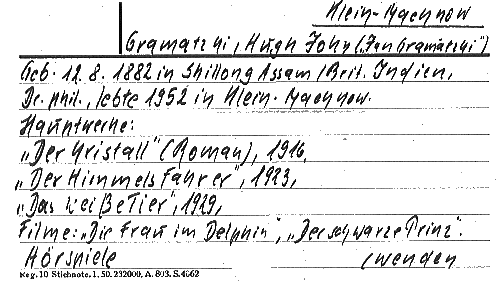 Klein-Machnow
Gramatzki, Hugh John ("Jan Gramatzki")
Geb. 12.8.1882 in Shillong Assam/Brit. Indien,
Dr. phil., lebte 1952 in Klein-Machnow.
Hauptwerke:
„Der Kristall" (Roman), 1916,
„Der Himmelsfahrer", 1923,
„Das weiße Tier", 1929,
Filme: „Die Frau im Delphin", „Der schwarze Prinz".
Hörspiele (wenden
Keg. 10 Stichnote. 1. 50. 232000, A. 803. S. 4662